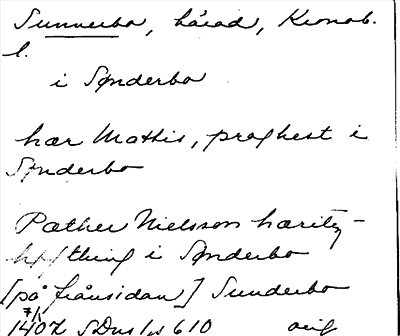 Sunnerbo, härad, Kronob.
l.
i Sønderbo
hær Mattis, proghest i
Sønderbo
Pæther Nielsson hæritz-
høfthing i Sønderbo
[på frånsidan] Sunderbo
7/1
1407 SDns 1 s 610 orig